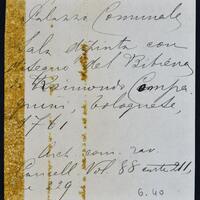 Palazzo Comunale
Sala dipinta con
disegno del Bibiena
da Raimondo Compa
gnini, bolognese,
1761
Arch. com. rav.
Cancell Vol 88
229
6.40